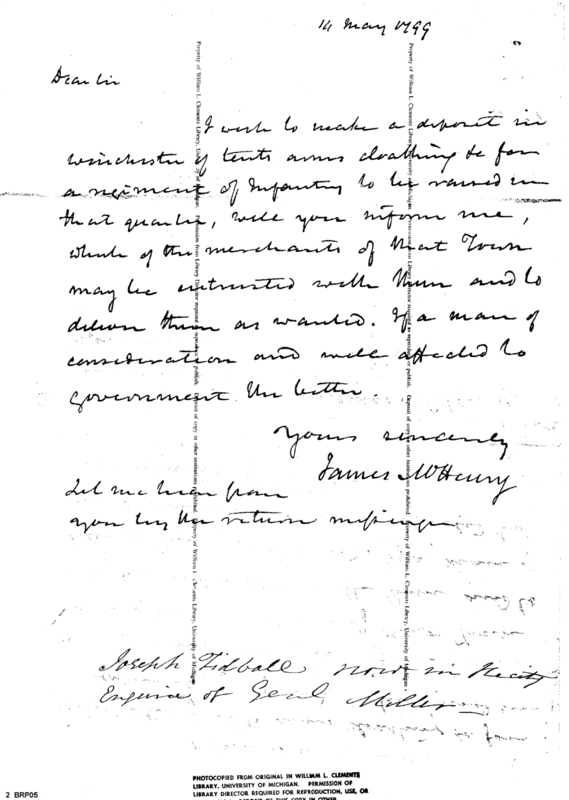 14 May 1799
Dear Sir
I wish to make a deposit in
Winchester of tents arms cloathing &c for
a regiment of Infantry to be raised in
that quarter, will you inform me,
which of the merchants of that Town
may be entrusted with them and to
deliver them as wanted. If a man of
consideration and well affected to
government the better.
Yours sincerely
James McHenry
Let me hear from
you by the return messenger
Joseph Tidball now in the city
Enquire of Genl. Miller
Property of William L. Clements Library, University of Michigan
PHOTOCOPIED FROM ORIGINAL IN WILLIAM L. CLEMENTS
LIBRARY, UNIVERSITY OF MICHIGAN. PERMISSION OF
LIBRARY DIRECTOR REQUIRED FOR REPRODUCTION, USE, OR
2 BRP05